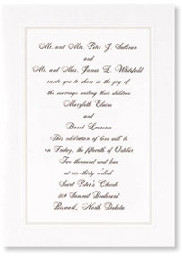 Mr. and Mrs. Peter J. Sullivan
and
Mr. and Mrs. James L. Whitfield
invite you to share in the joy of
the marriage uniting their children
Marybeth Elaine
and
David
This celebration of love will be
on Friday, the fifteenth of October
Two thousand and
at six-thirty
Saint Peter's Church
Boulevard
Bismarck, North Dakota